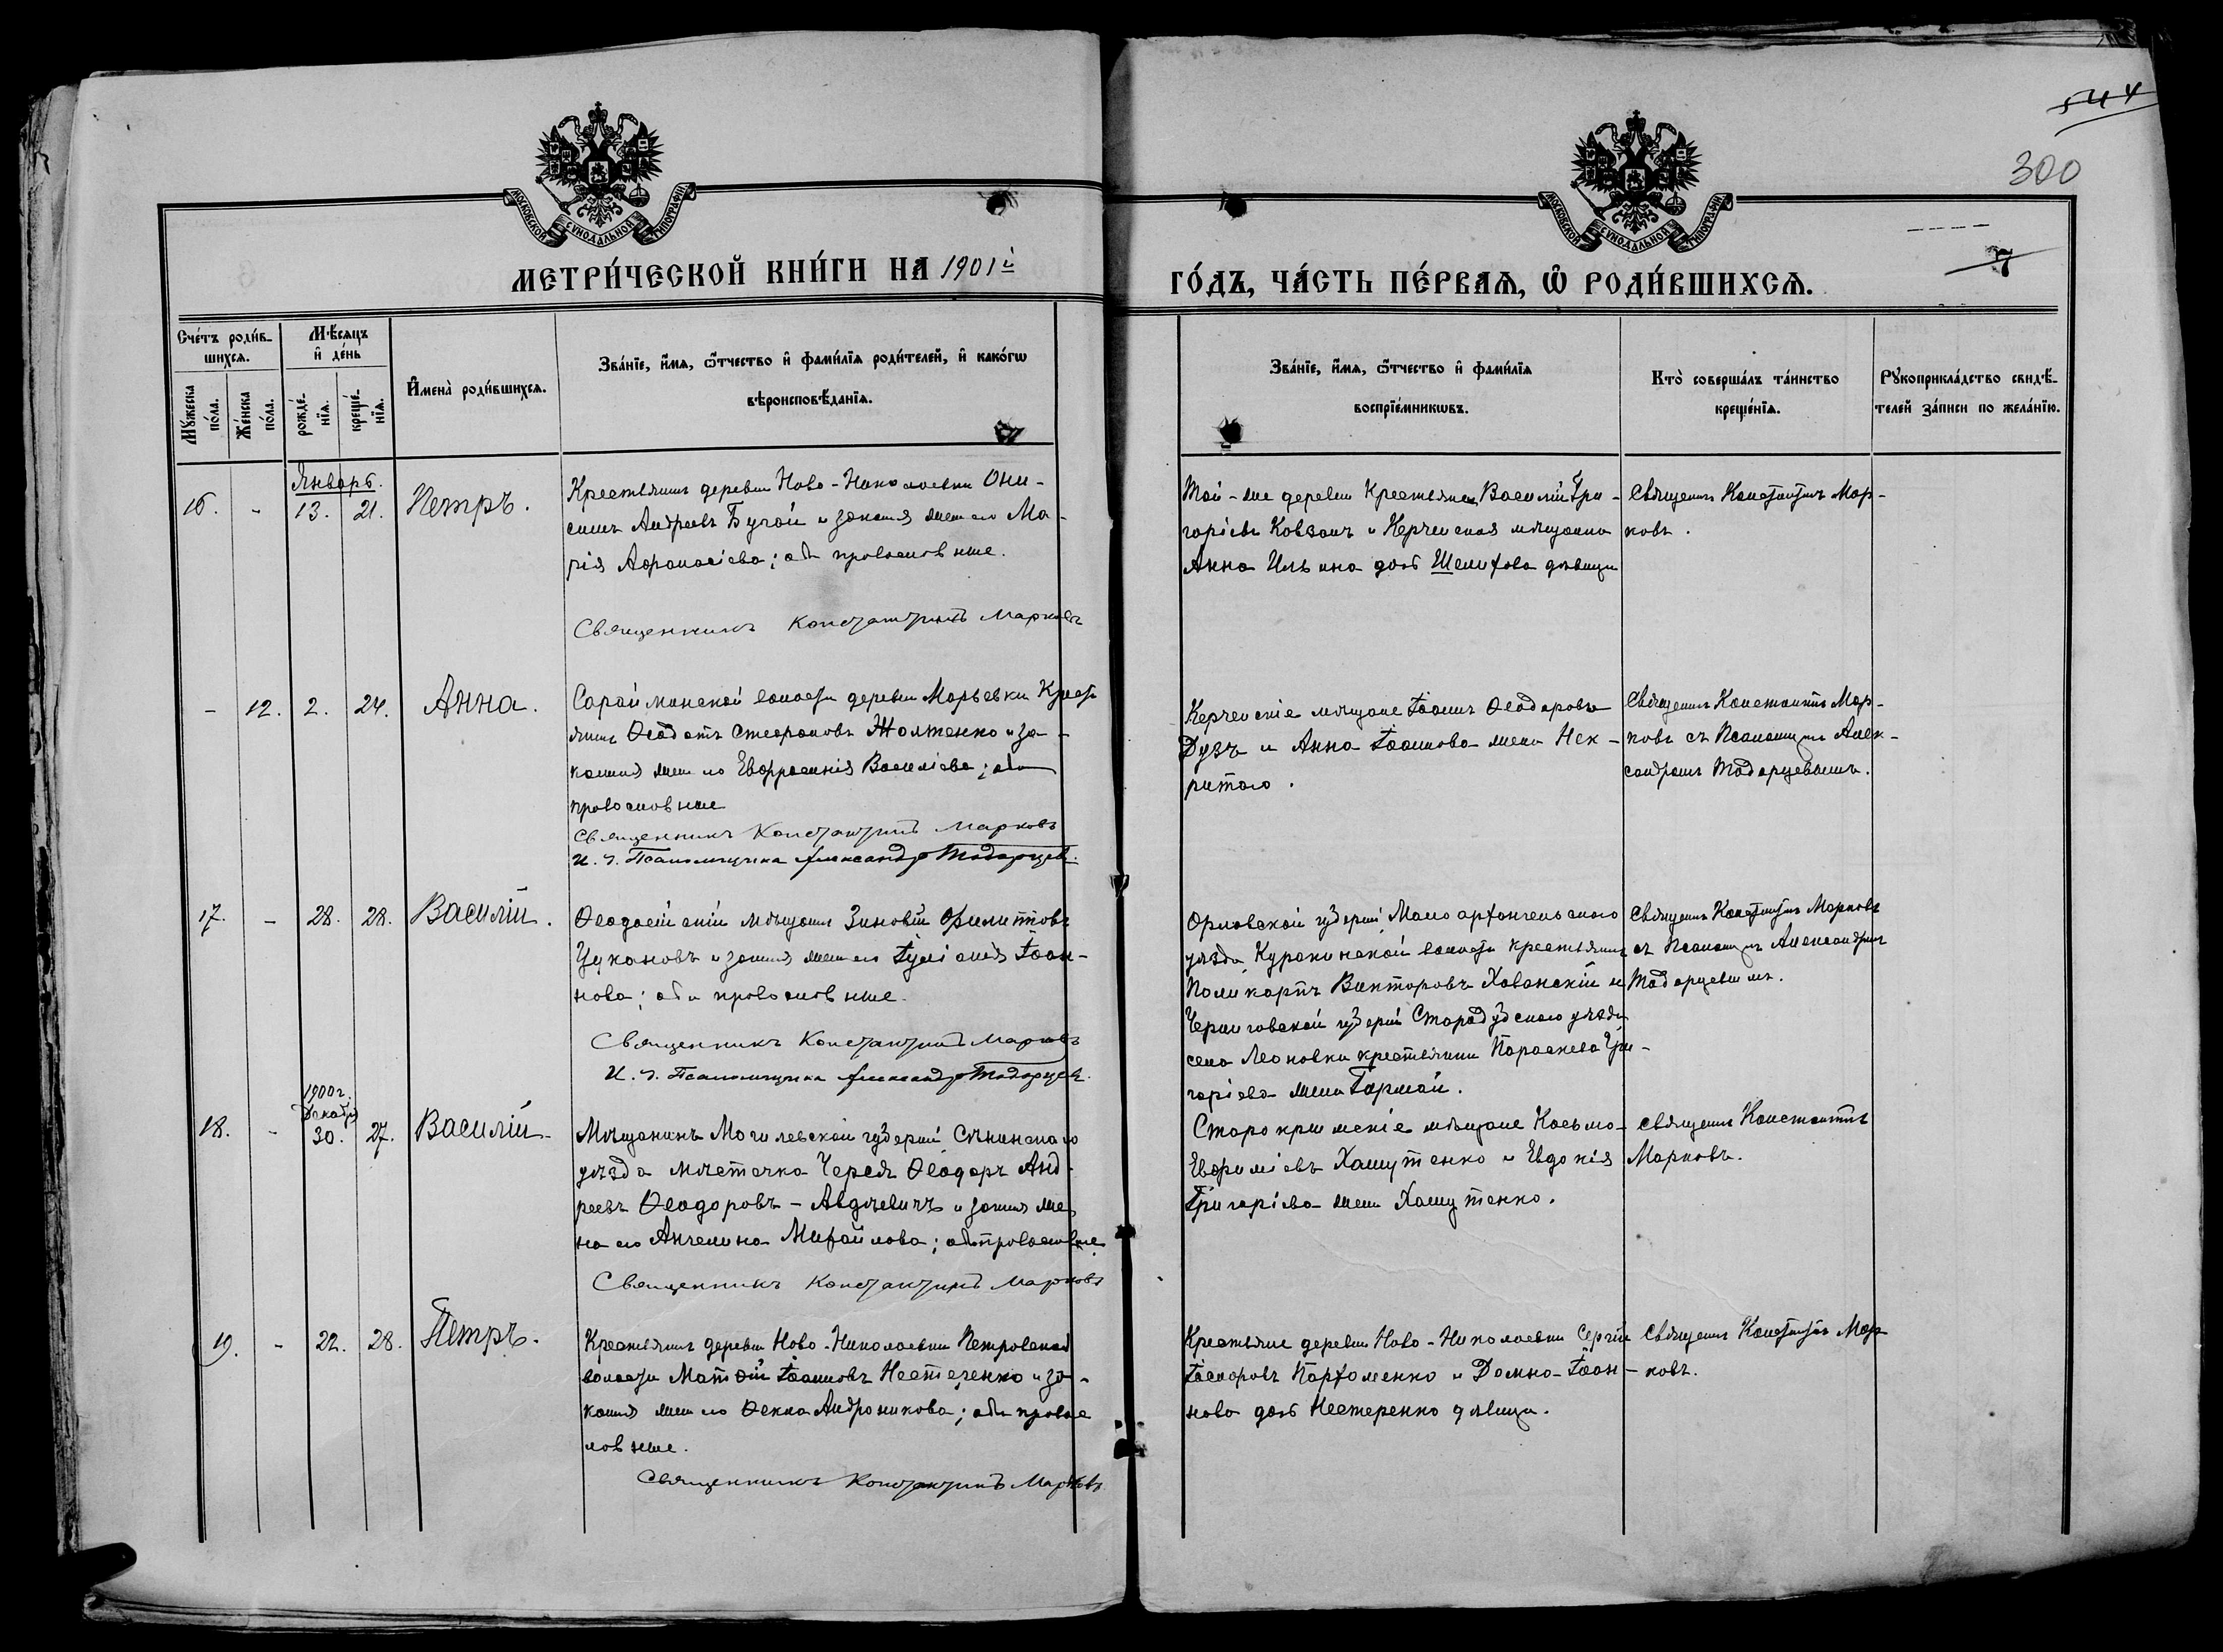 544
300
МОСКОВСКОЙ СУНОДАЛЬНОЙ ТИПОГРАФІИ
МОСКОВСКОЙ СУНОДАЛЬНОЙ ТИПОГРАФІИ
МЕТРИ́ЧЕСКОЙ КНИ́ГИ НА 1901й
ГО́ДЪ, ЧА́СТЬ ПЕ́РВАѦ, Ѡ҆ РОДИ́ВШИХСѦ.
7
Сче́тъ роди́в-
шихсѧ.
Мѣ́сѧцъ
и҆ де́нь
Мꙋ́жеска
по́ла.
Же́нска
по́ла.
рожде́-
нїѧ.
креще́-
нїѧ.
И҆мена̀ роди́вшихсѧ.
Зва́нїе, и҆́мѧ, ѻ҆́тчество и҆ фами́лїѧ роди́телей, и҆ како́гѡ
вѣроисповѣ́данїѧ.
Зва́нїе, и҆́мѧ, ѻ҆́тчество и҆ фами́лїѧ
воспрїе́мникѡвъ.
Кто̀ соверша́лъ та́инство
креще́нїѧ.
Рꙋкоприкла́дство свидѣ́-
телей за́писи по жела́нїю.
Январь.
16. - 13. 21. Петръ.
Крестьянинъ деревни Ново-Николаевки Они-
симъ Андреевъ Бугай и законная жена его Ма-
рія Афанасіева; оба православные.
Священникъ Константинъ Марковъ
Той-же деревни Крестьянинъ Василій Гри-
горіевъ Ковзанъ и Керченская мѣщанка
Анна Ильина дочь Шелихова дѣвица
Священникъ Константинъ Мар-
ковъ.
- 12. 2. 24. Анна.
Сарайминской волости деревни Марьевки Кресть
янинъ Ѳеодотъ Стефановъ Жолтенко и за-
конная жена его Евфросинія Василіева; оба
православные
Священникъ Константинъ Марковъ
И. д. Псаломщика Александръ
Керченскіе мѣщане Іоаннъ Ѳеодоровъ
Дузъ и Анна Іоаннова жена Нек-
ритаго.
Священникъ Константинъ Мар-
ковъ съ Псаломщикомъ Алек-
сандромъ
17. - 28. 28. Василій.
Ѳеодосійскій мѣщанинъ Зиновій Филипповъ
Цукановъ и законная жена его Іуліанія Іоан-
нова; оба православные.
Священникъ Константинъ Марковъ
И. д. Псаломщика Александръ
Орловской губерніи, Малоархангельскаго
уѣзда, Куракинской волости крестьянинъ
Поликарпъ Викторовъ Хованскій и
Черниговской губерніи Стародубскаго уѣзда
села Леоновки крестьянина Параскева Гри-
горіева жена
Священникъ Константинъ Марковъ
съ Псаломщикомъ Александромъ
18. - 1900 г.
Декабрь
30. 27. Василій.
Мѣщанинъ Могилевской губерніи Сѣнинскаго
уѣзда мѣстечка Черея Ѳеодоръ Анд-
реевъ Ѳеодоровъ-Авдѣевичъ и законная же
на его Ангелина Михайлова; оба православные
Священникъ Константинъ Марковъ
Старокрымскіе мѣщане Косьма-
Евфиміевъ Хашутенко и Евдокія
Григоріева жена Хашутенко.
Священникъ Константинъ
Марковъ.
19. - 22. 28. Петръ.
Крестьянинъ деревни Ново-Николаевки Петровской
волости Матѳій Іоанновъ и за-
конная жена его Ѳекла Андроникова; оба правос
лавные.
Священникъ Константинъ Марковъ
Крестьяне деревни Ново-Николаевки Сергій
Пархоменко и Домна Іоан-
нова дочь Нестеренко дѣвица.
Священникъ Константинъ Мар-
ковъ.